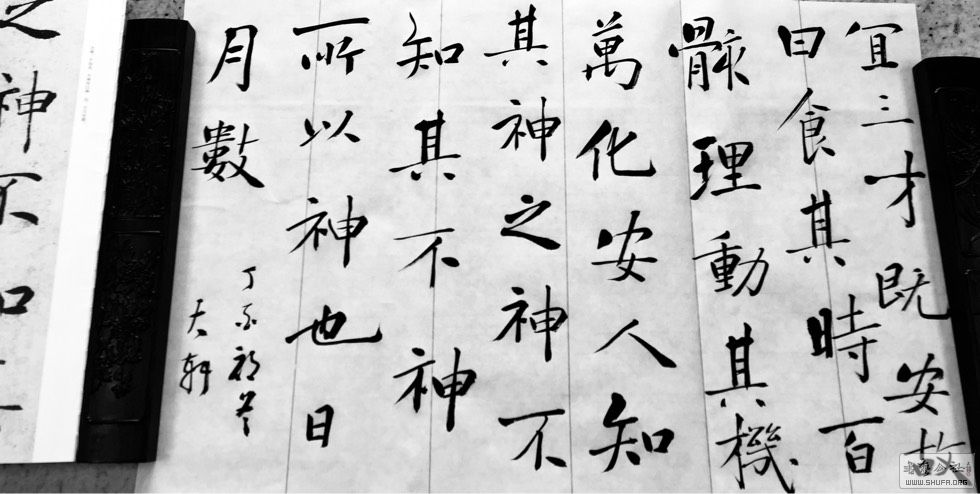 宜三才既安故
曰食其時百
骸理動其機
萬化安人知
其神之神不
知其不神
所以神也日
月數
丁酉初冬
之神不知
WWW.SHUFA.ORG